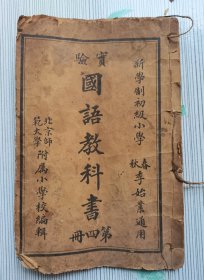 新學制初級小學
春秋季始業適用
實驗
國語教科書
第四冊
北京師範大學附屬小學校編輯